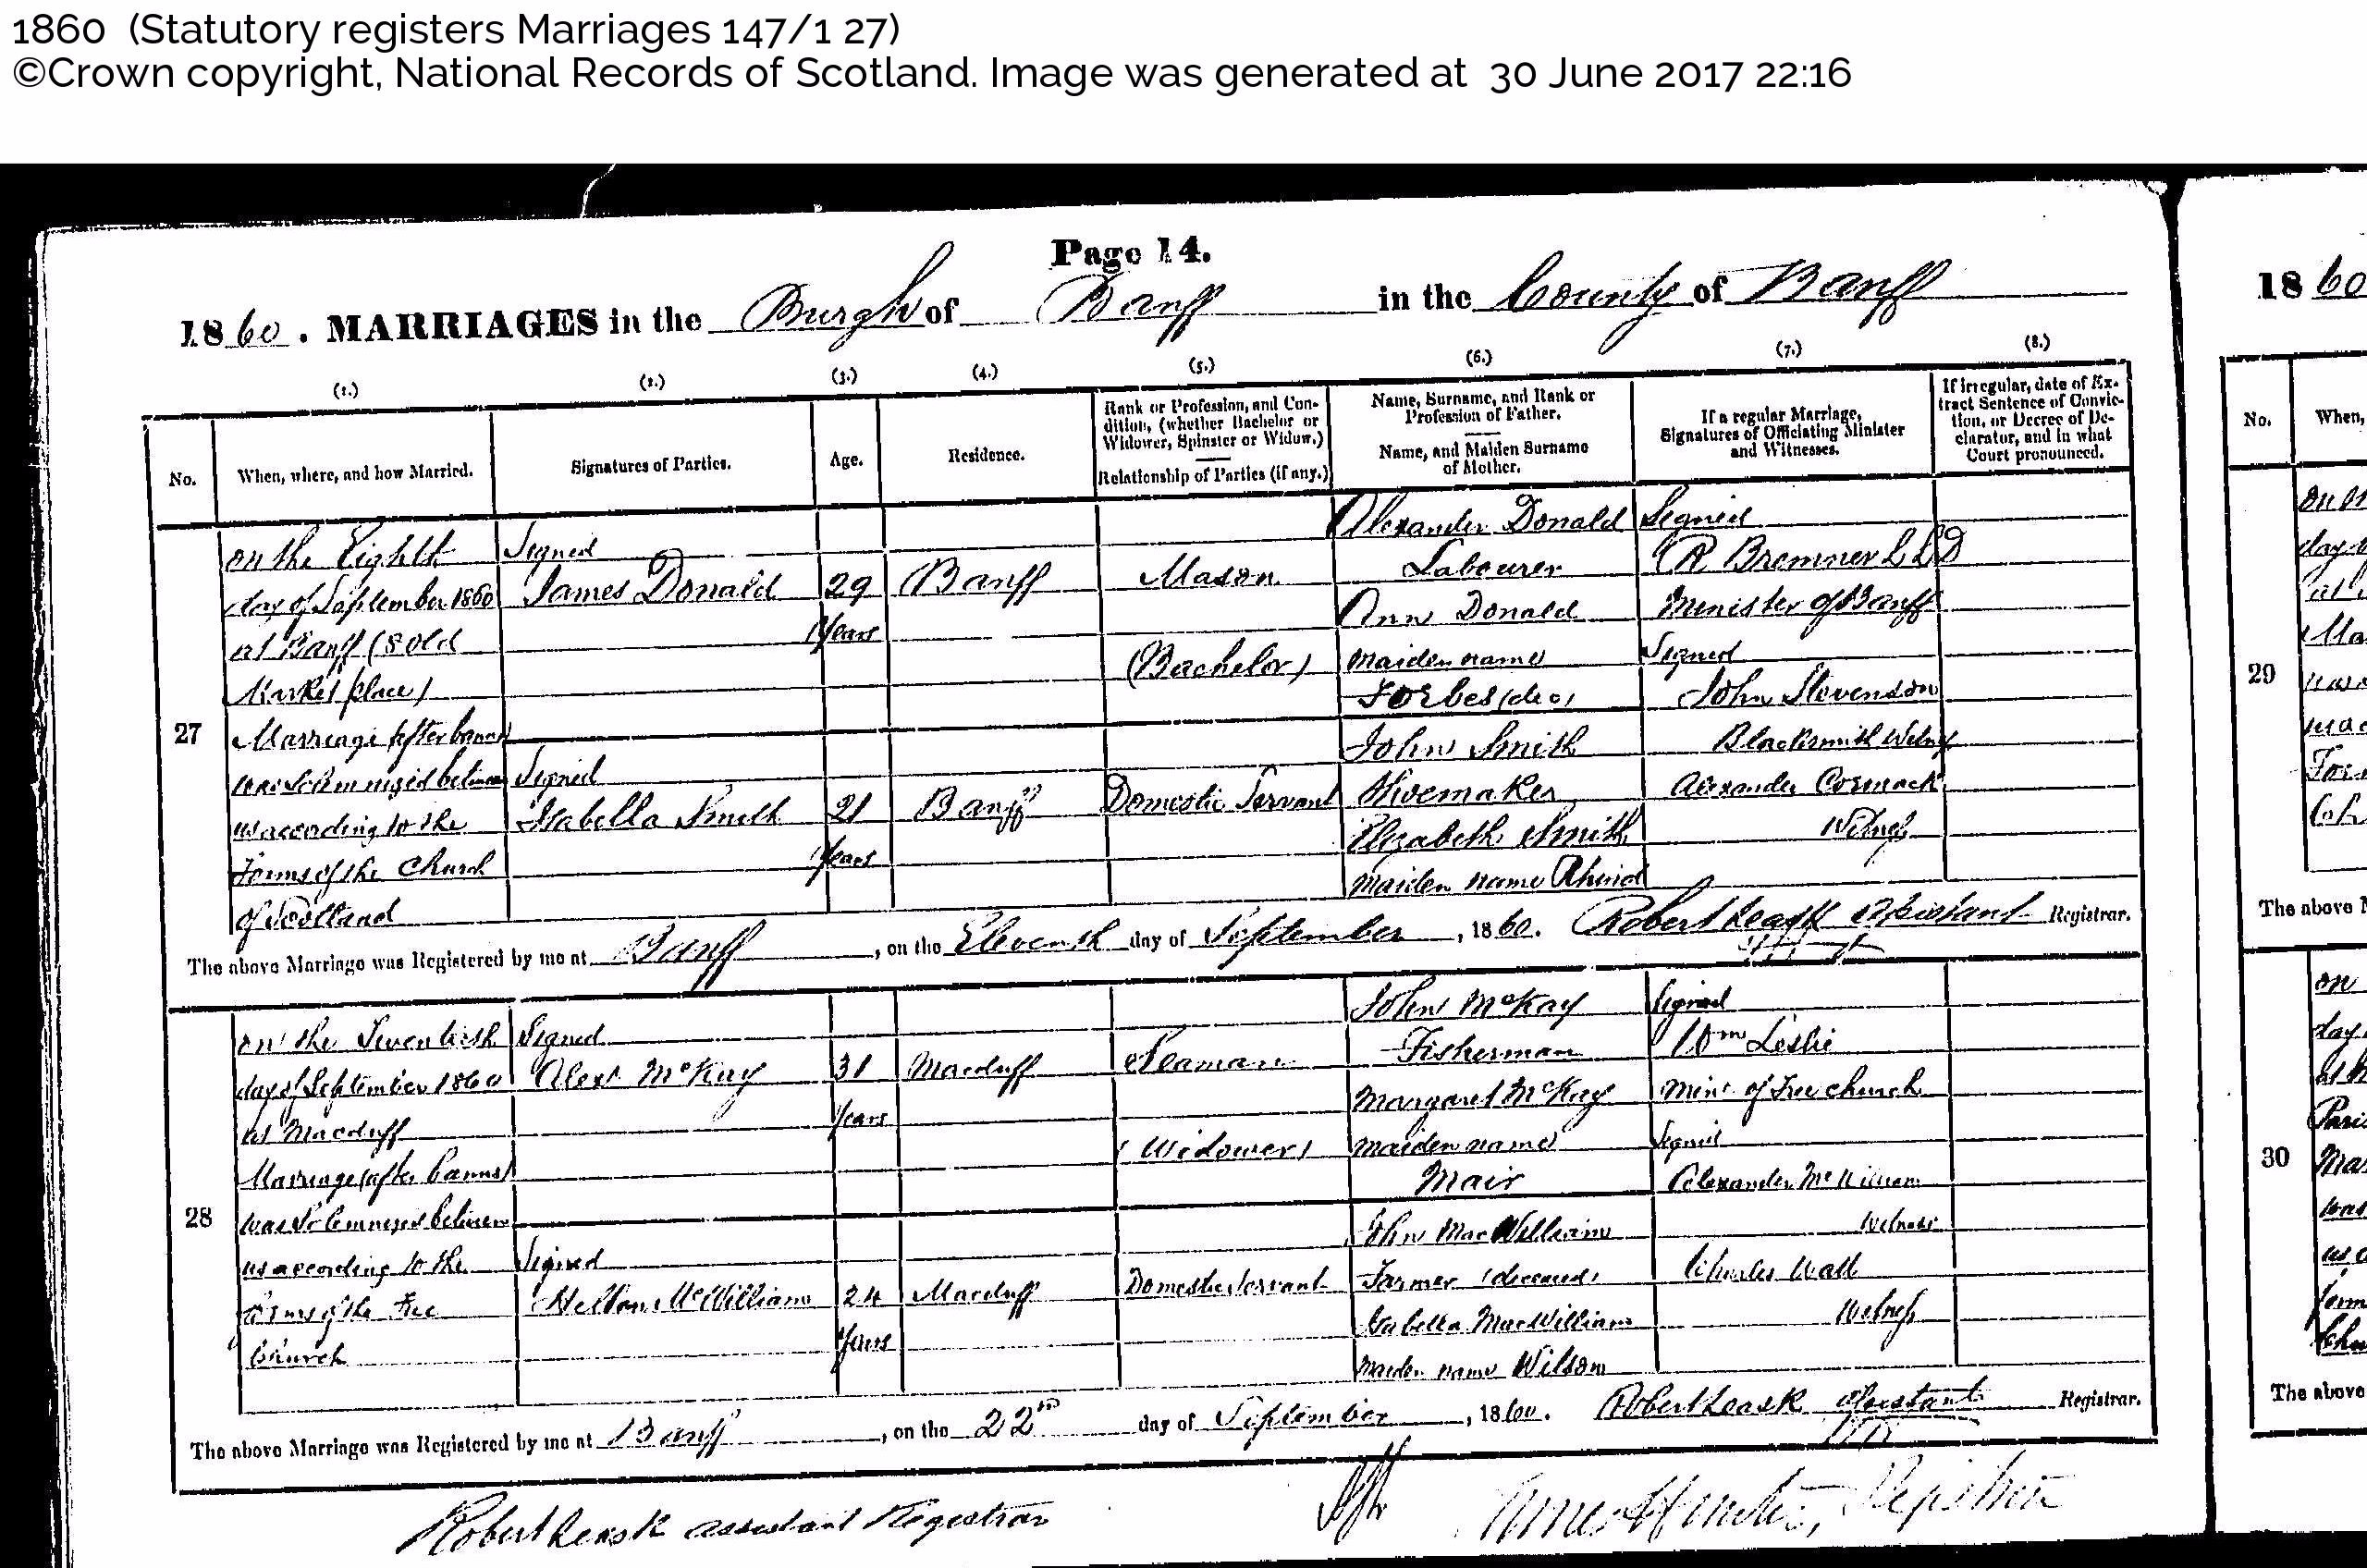 1860 (Statutory registers Marriages 147/1 27)
©Crown copyright, National Records of Scotland. Image was generated at 30 June 2017 22:16
Page 14.
1860. MARRIAGES in the Burgh of Banff in the County of Banff
1860
(1.) (2.) (3.) (4.) (5.) (6.) (7.) (8.)
No.
When, where, and how Married.
Signatures of Parties.
Age.
Residence.
Rank or Profession, and Con-
dition, (whether Bachelor or
Widower, Spinster or Widow.)
Relationship of Parties (if any.)
Name, Surname, and Rank or
Profession of Father.
Name, and Maiden Surname
of Mother.
If a regular Marriage,
Signatures of Officiating Minister
and Witnesses.
If irregular, date of Ex-
tract Sentence of Convic-
tion, or Decree of De-
clarator, and in what
Court pronounced.
27
on the Eighth
day of September 1860
at Banff (8 Old
Market place)
Marriage after banns
was solemnized between
us according to the
Forms of the Church
of Scotland
Signed
James Donald
Signed
Isabella Smith
29
Years
21
Years
Banff
Banff
Mason
(Bachelor)
Domestic Servant
Alexander Donald
Labourer
Ann Donald
maiden name
Forbes (dec)
John Smith
Shoemaker
Elizabeth Smith
maiden name Rhind
Signed
R Bremner LLD
Minister of Banff
Signed
John Stevenson
Blacksmith Witness
Alexander Cormack
Witness
The above Marriage was Registered by me at Banff, on the Eleventh day of September, 1860. Robert Leask Assistant Registrar.
28
on the Seventeenth
day of September 1860
at Macduff
Marriage (after banns)
was Solemnized between
us according to the
forms of the Free
Church
Signed
Alexr McKay
Signed
McWilliam
31
Years
24
Years
Macduff
Macduff
Seaman
(Widower)
Domestic Servant
John McKay
Fisherman
Margaret McKay
maiden name
Mair
John MacWilliam
Farmer (deceased)
Isabella MacWilliam
maiden name Wilson
Signed
Wm Leslie
Minr of Free Church
Signed
Alexander McWilliam
witness
Charles Watt
Witness
The above Marriage was Registered by me at Banff, on the 22nd day of September, 1860. Robert Leask Assistant Registrar.
Robert Leask assistant Registrar
Registrar
No.
When,
29
30
The above
The above